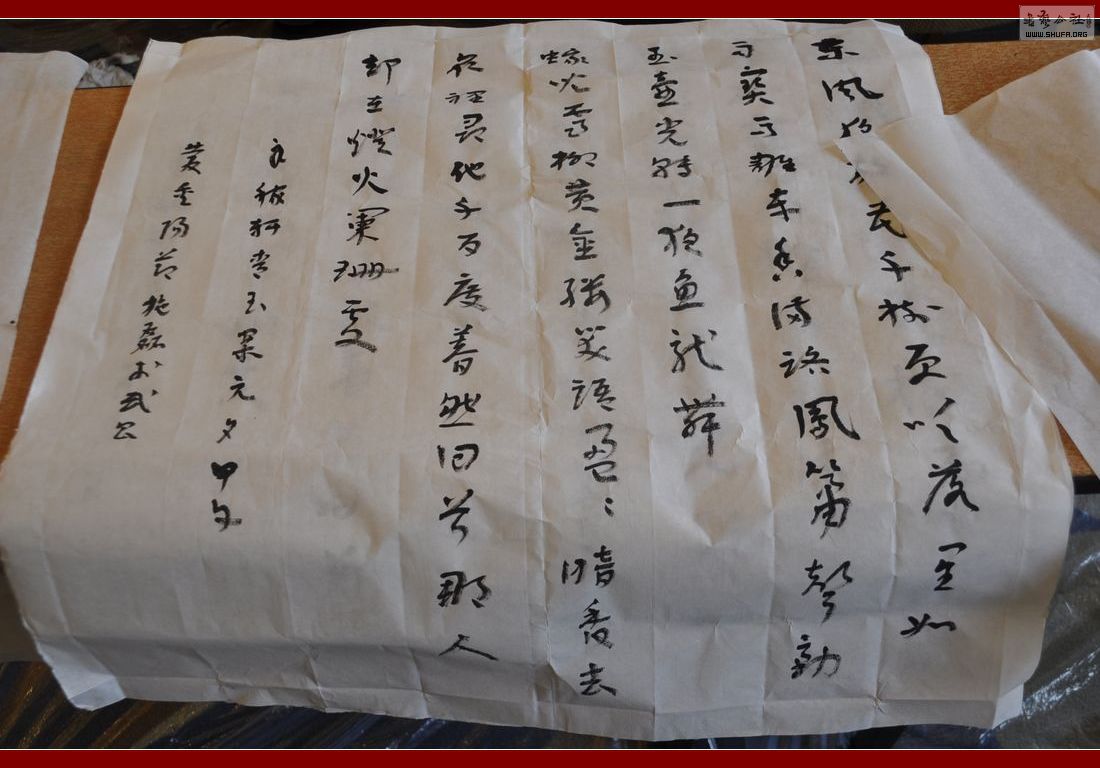 東風花千樹更吹落星如
雨寶馬雕車香滿路鳳簫聲動
玉壺光轉一夜魚龍舞
蛾兒雪柳黄金縷笑語盈〻暗香去
衆裡尋他千百度驀然回首那人
却在燈火闌珊處
辛稼軒青玉案元夕甲午
歲重陽節施磊於
書藝公社
WWW.SHUFA.ORG